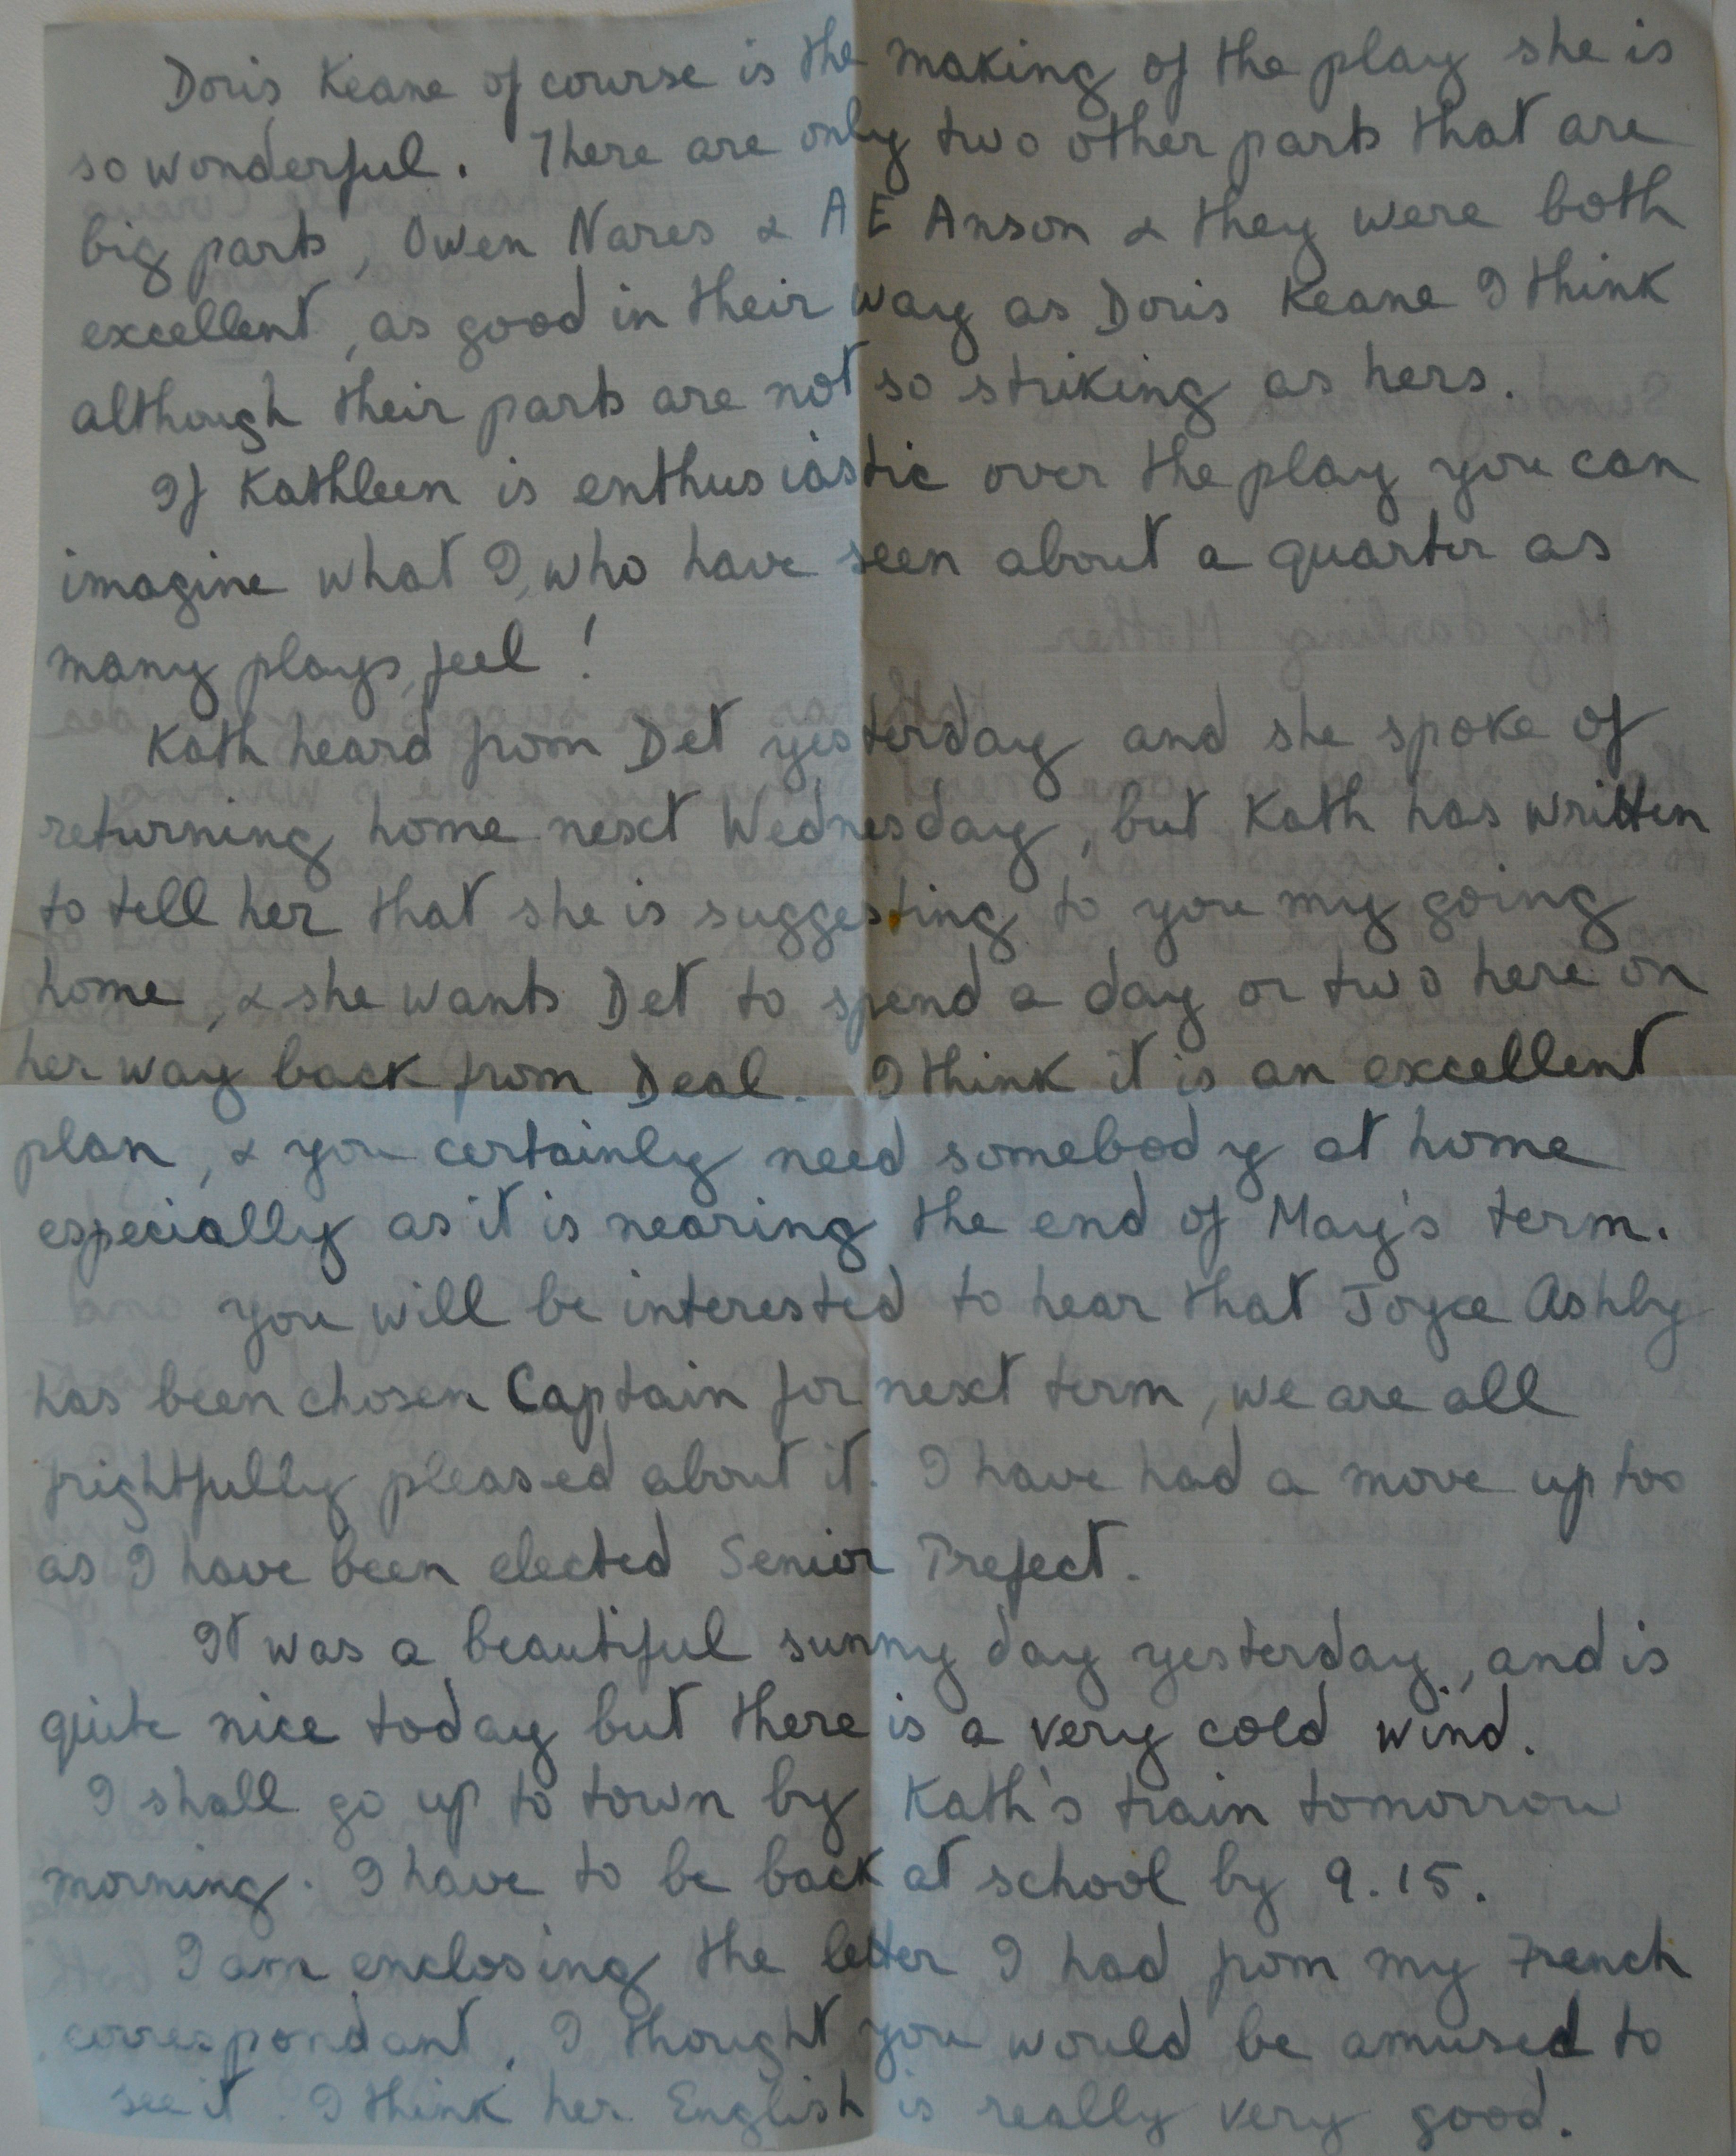 Doris Keane of course is the making of the play she is
so wonderful. There are only two other parts that are
big parts, Owen Nares & A E Anson & they were both
excellent, as good in their way as Doris Keane I think
although their parts are not so striking as hers.
If Kathleen is enthusiastic over the play you can
imagine what I, who have seen about a quarter as
many plays, feel!
Kath heard from Det yesterday and she spoke of
returning home next Wednesday, but Kath has written
to tell her that she is suggesting to you my going
home, & she wants Det to spend a day or two here on
her way back from Deal. I think it is an excellent
plan, & you certainly need somebody at home
especially as it is nearing the end of May's term.
You will be interested to hear that Joyce Ashby
has been chosen Captain for next term, we are all
frightfully pleased about it. I have had a move up too
as I have been elected Senior Prefect.
It was a beautiful sunny day yesterday, and is
quite nice today but there is a very cold wind.
I shall go up to town by Kath's train tomorrow
morning. I have to be back at school by 9.15.
I am enclosing the letter I had from my French
correspondant. I thought you would be amused to
see it. I think her English is really very good.